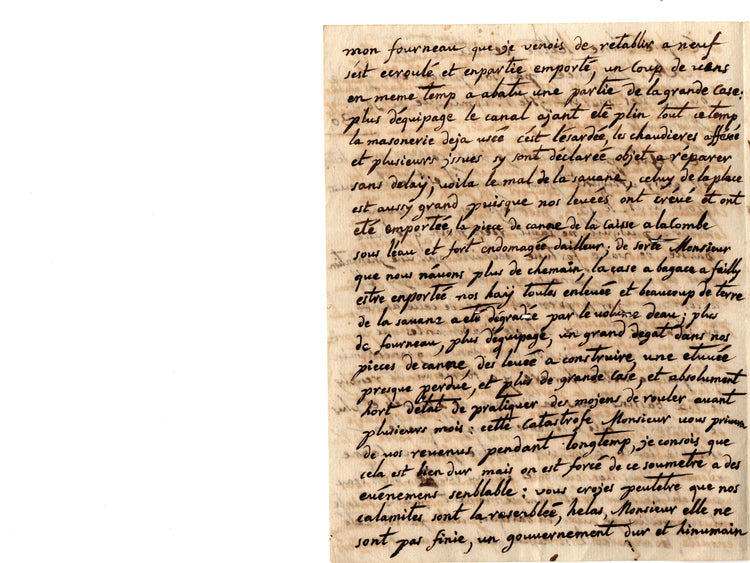 mon fourneau que je venois de retablir a neuf
s'ést ecroulé et enpartie emporté, un Coup de vens
en meme temp a abatu une partie de la grande Case:
plus déquipage le canal ajant eté plin tout ce temp
la masonerie deja uscé c'ést lésardée, les chaudieres afféseé
et plusieurs jssues sy sont declareé objet a réparer
sans delaÿ; voila le mal de la savane, celuy de la place
est aussy grand puisque nos leveés ont crévé et ont
eté emporteé, la piece de canne de la Caisse a lacombe
sous l'éau et fort endomageé dailleur; de sorte Monsieur
que nous návons plus de chemain, la case a bagace a failly
estre enporteé nos haÿ toutes enleveé et beaucoup de terre
de la savane a eté dégradée par le volume deau; plus
de fourneau, plus déquipage, un grand degat dans nos
pieces de canne, des leveé a construire, une etuveé
presque perdue, et plus de grande Case, et absolument
hort détat de pratiquer des mojens de rouler avant
plusieurs mois: cette Catastrofe Monsieur vous privera
de vos revenus pendant longtemp, je consois que
cela est bien dur mais on est forcé de ce soumetre a des
evénemens senblable: vous crojes peutetre que nos
calamites sont la rasenbleé, helas, Monsieur elle ne
sont pas finie, un gouvernement dur et hinumain